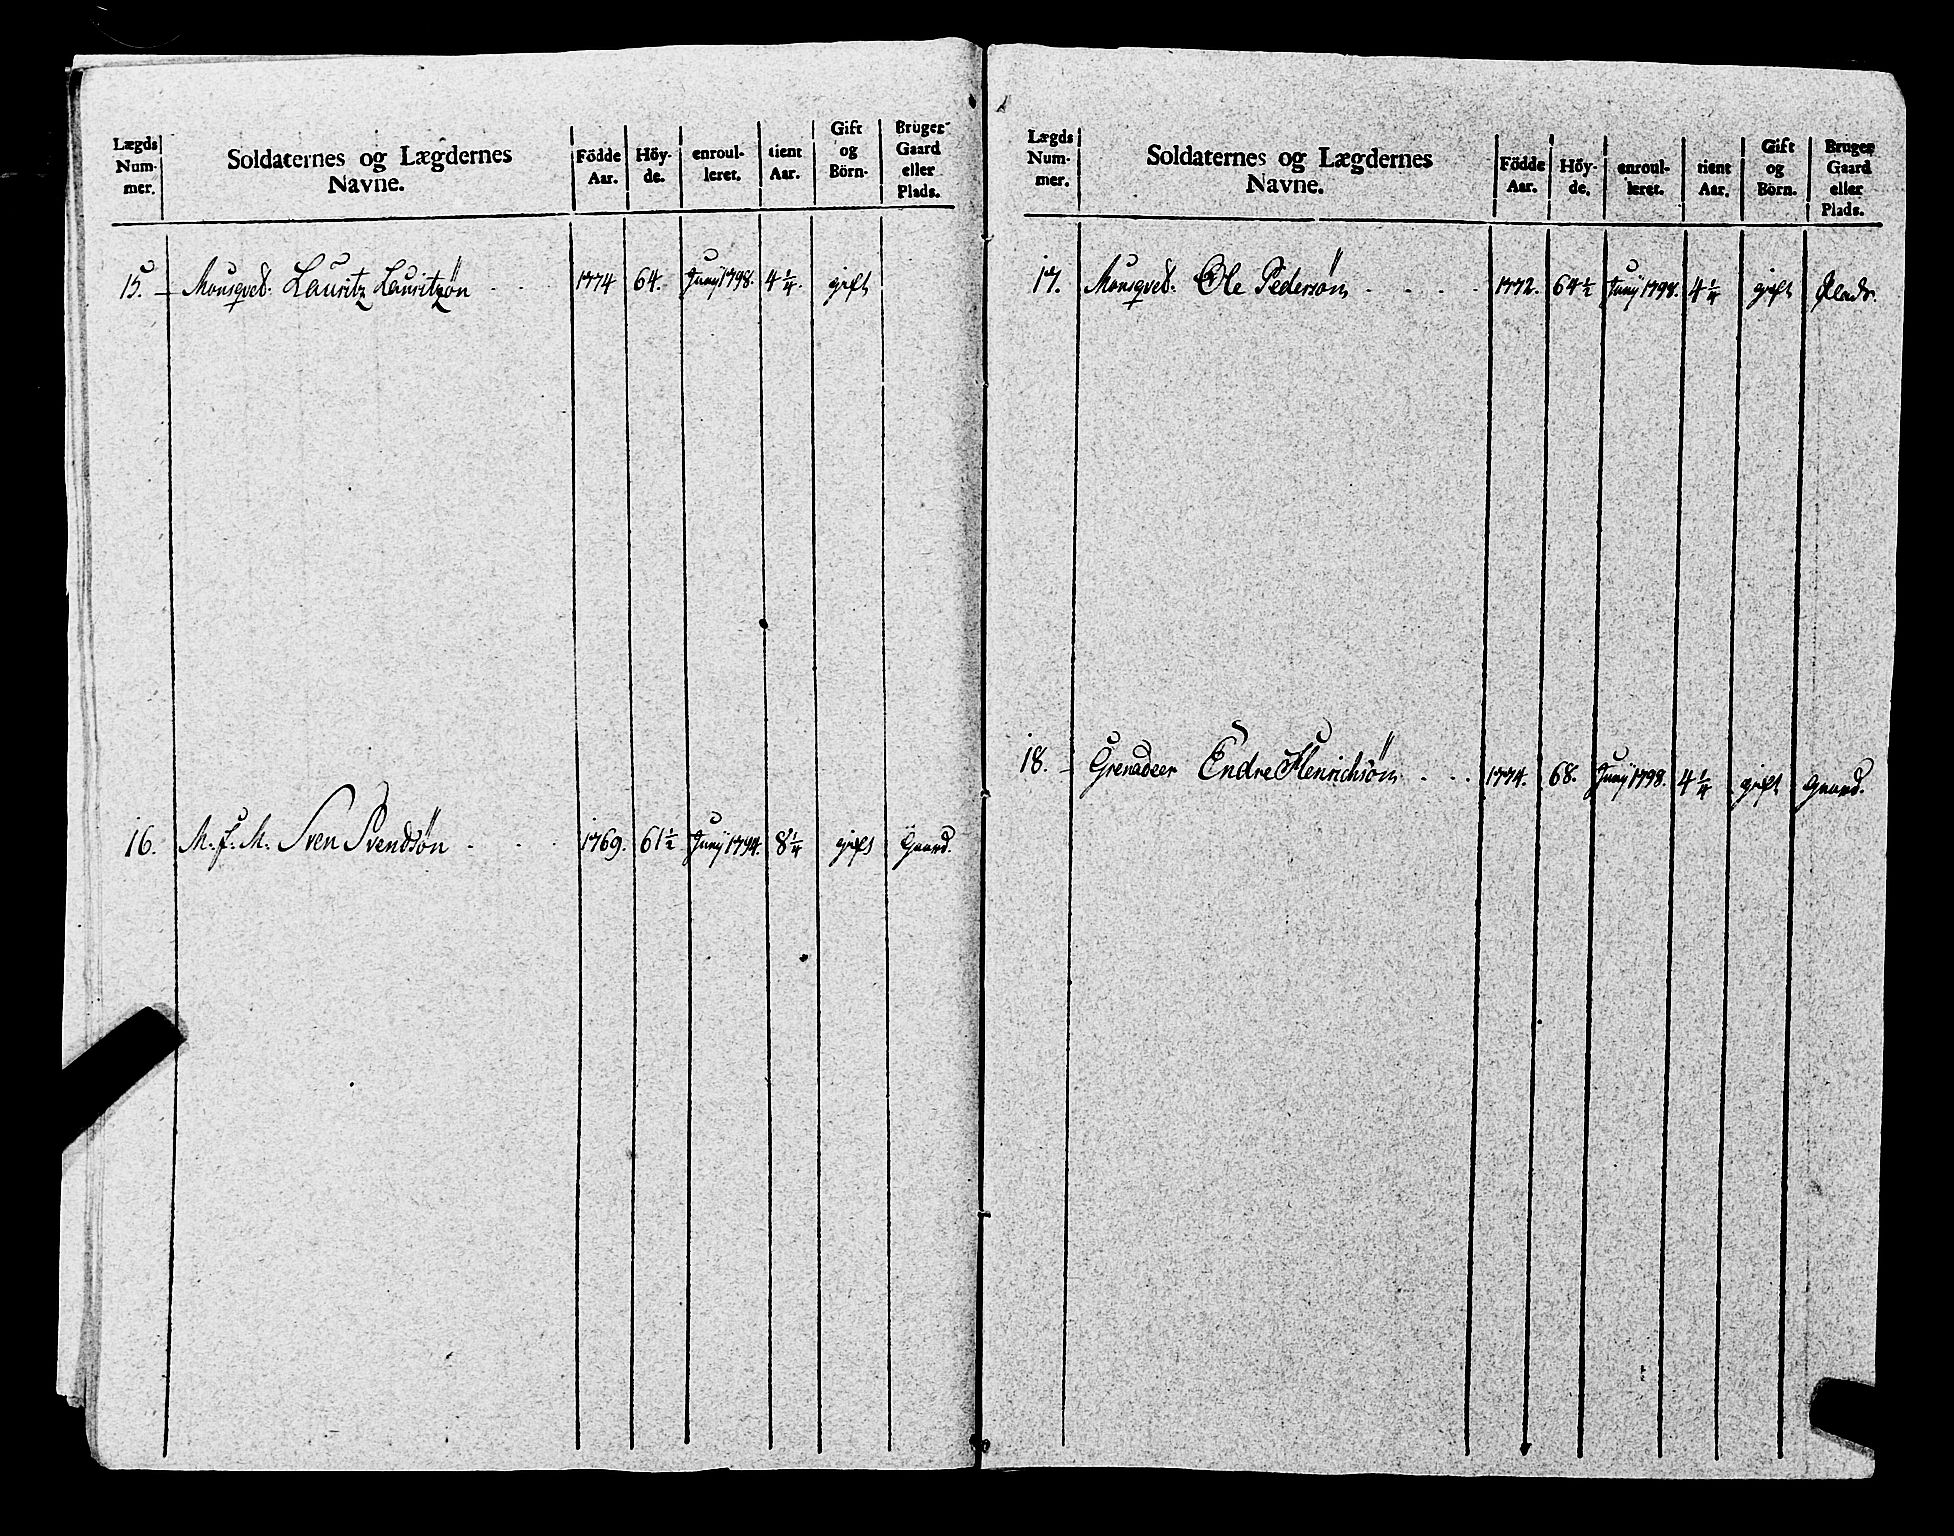 Lægds Num- mer. Soldaternes og Lægdernes Navne. Födde Aar. Höy- de. enroul- leret. tient Aar. Gift og Börn. Bruger Gaard eller Plads.
15. Mousqved. Lauritz Lauritzön 1774 64. Junÿ 1798. 4 1/4. gift
16. M. f. M. Sven Svendsön 1769. 61 1/2 Junÿ 1794. 8 1/4 gift Gaard.
Lægds Num- mer. Soldaternes og Lægdernes Navne. Födde Aar. Höy- de. enroul- leret. tient Aar. Gift og Börn. Bruger Gaard eller Plads.
17. Mousqved. Ole Pedersön 1772. 64 1/2 Junÿ 1798. 4 1/4 gift Plads.
18. Grenadeer Endre Henrichsön 1774. 68. Junÿ 1798. 4 1/4 gift Gaard.